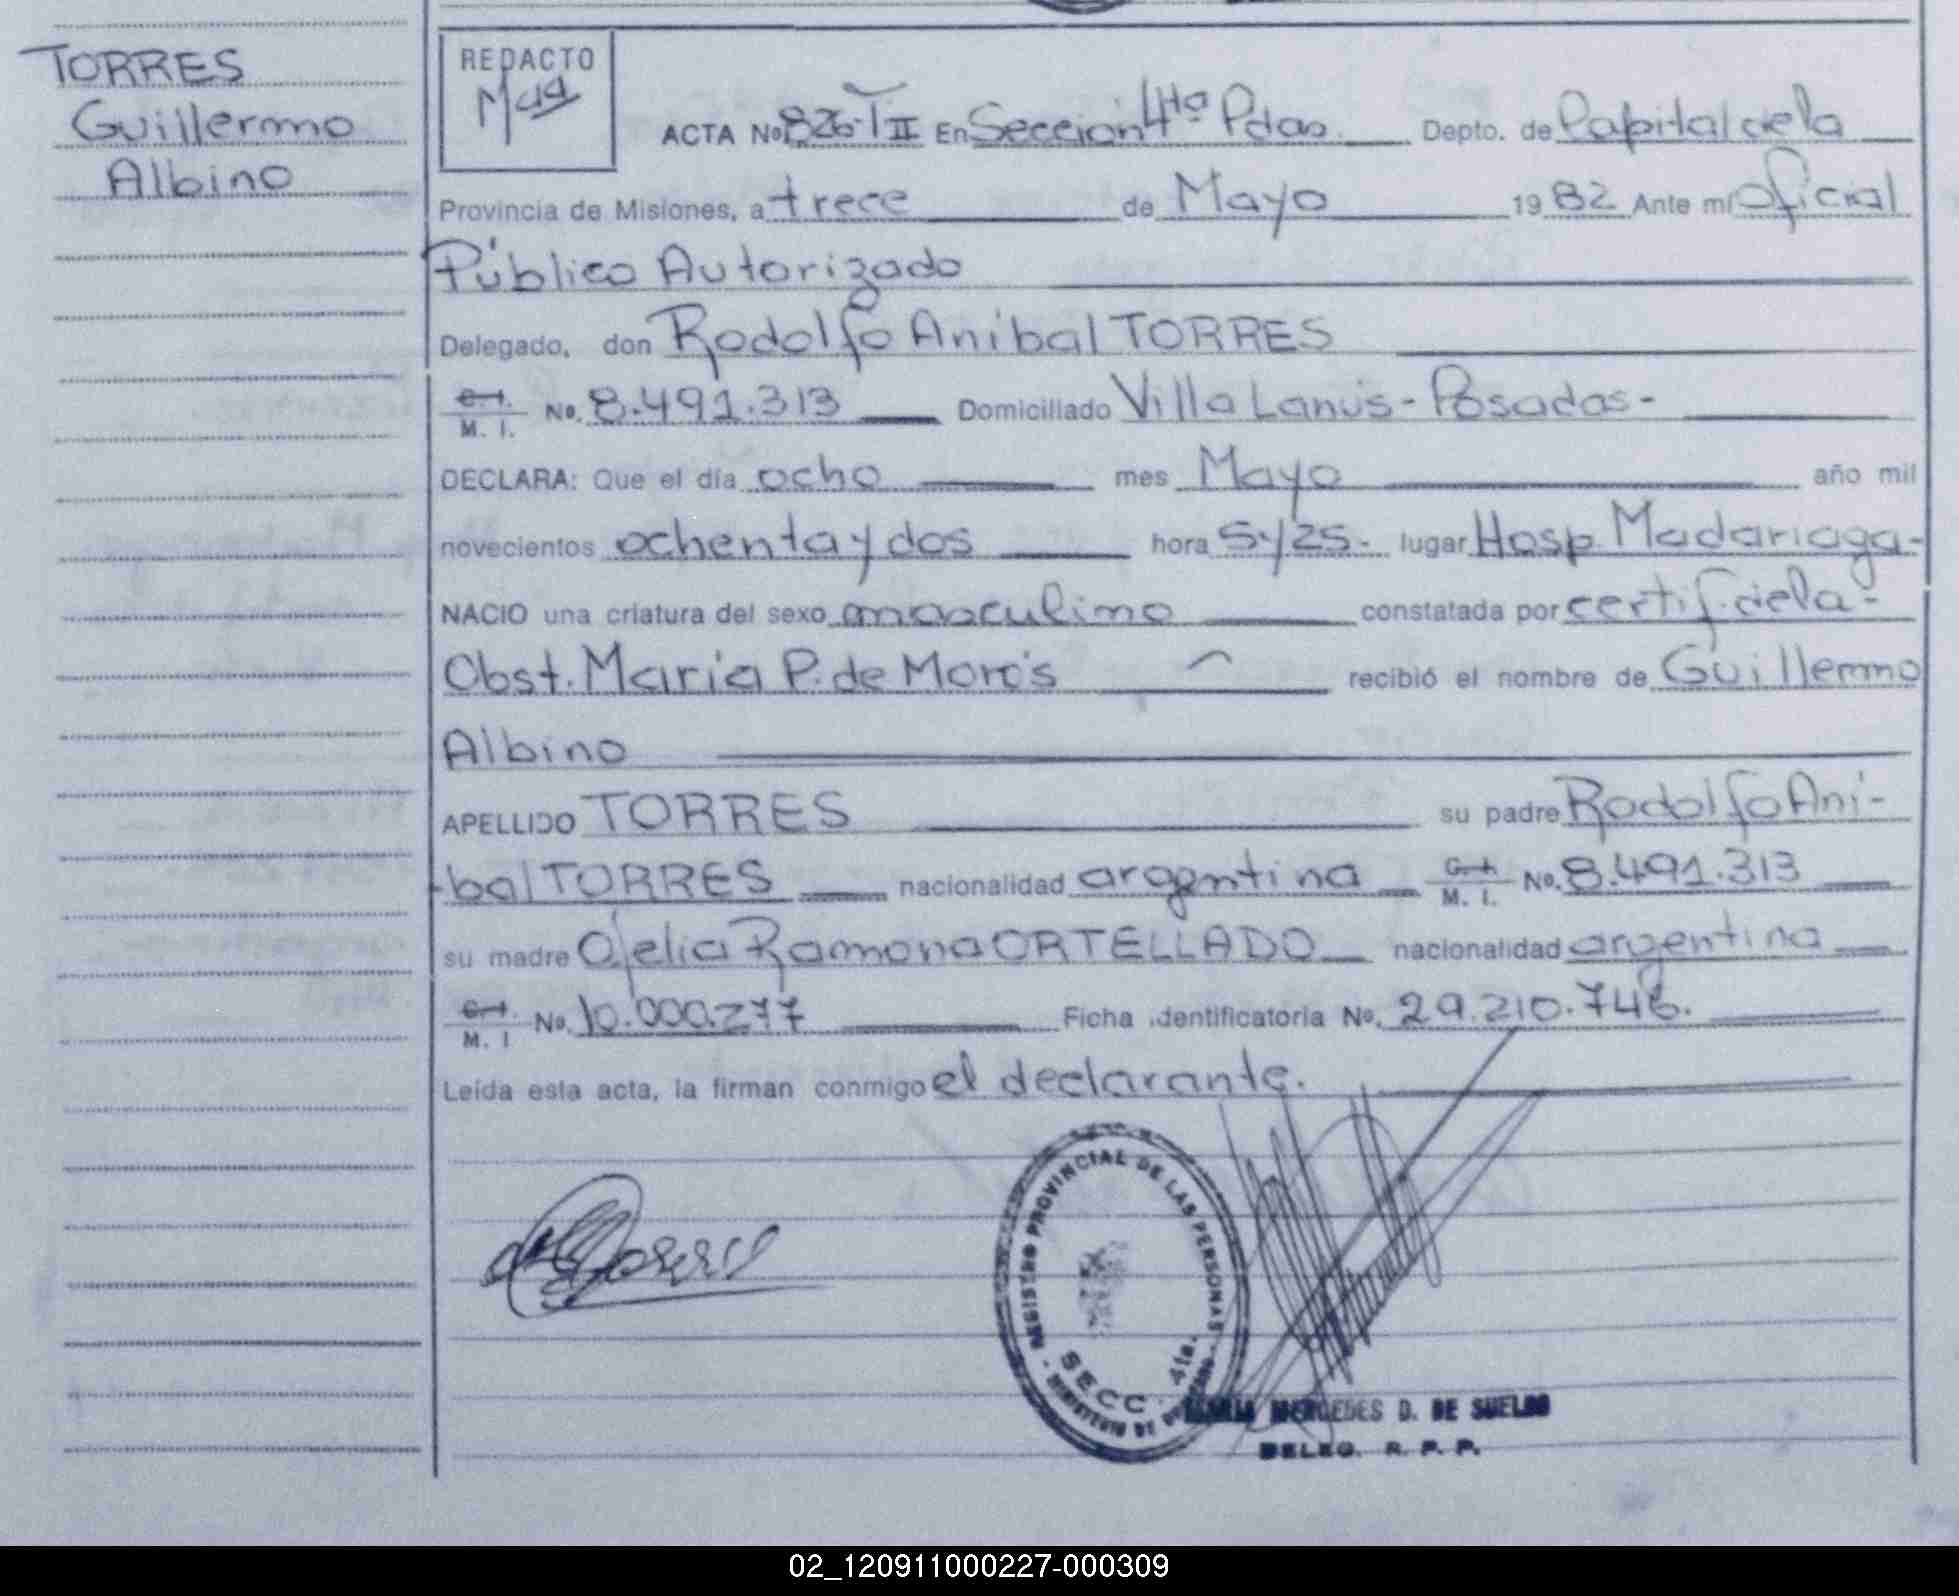 TORRES
Guillermo
Albino
REDACTO
ACTA No 826-TII En Sección 4ta Pdas. Depto. de Capital de la
Provincia de Misiones, a trece de Mayo 19 82 Ante mí Oficial
Público Autorizado
Delegado, don Rodolfo Aníbal TORRES
C.I. M. I. No. 8.491.313 Domiciliado Villa Lanús - Posadas -
DECLARA: Que el día ocho mes Mayo año mil
novecientos ochenta y dos hora 5 y 25. lugar Hosp. Madariaga-
NACIO una criatura del sexo masculino constatada por certif. de la -
Obst. María P. de recibió el nombre de Guillermo
Albino
APELLIDO TORRES su padre Rodolfo Aní-
-bal TORRES nacionalidad argentina C.I. M. I. No. 8.491.313
su madre Ofelia Ramona ORTELLADO nacionalidad argentina
C.I. M. I No. 10.000.277 Ficha identificatoria No. 29.210.746.
Leída esta acta, la firman conmigo el declarante.
REGISTRO PROVINCIAL DE LAS PERSONAS
SECC. 4ta.
MINISTERIO DE GOBIERNO
MARIA MERCEDES D. DE SUELDO
DELEG. R. P. P.
02_120911000227-000309